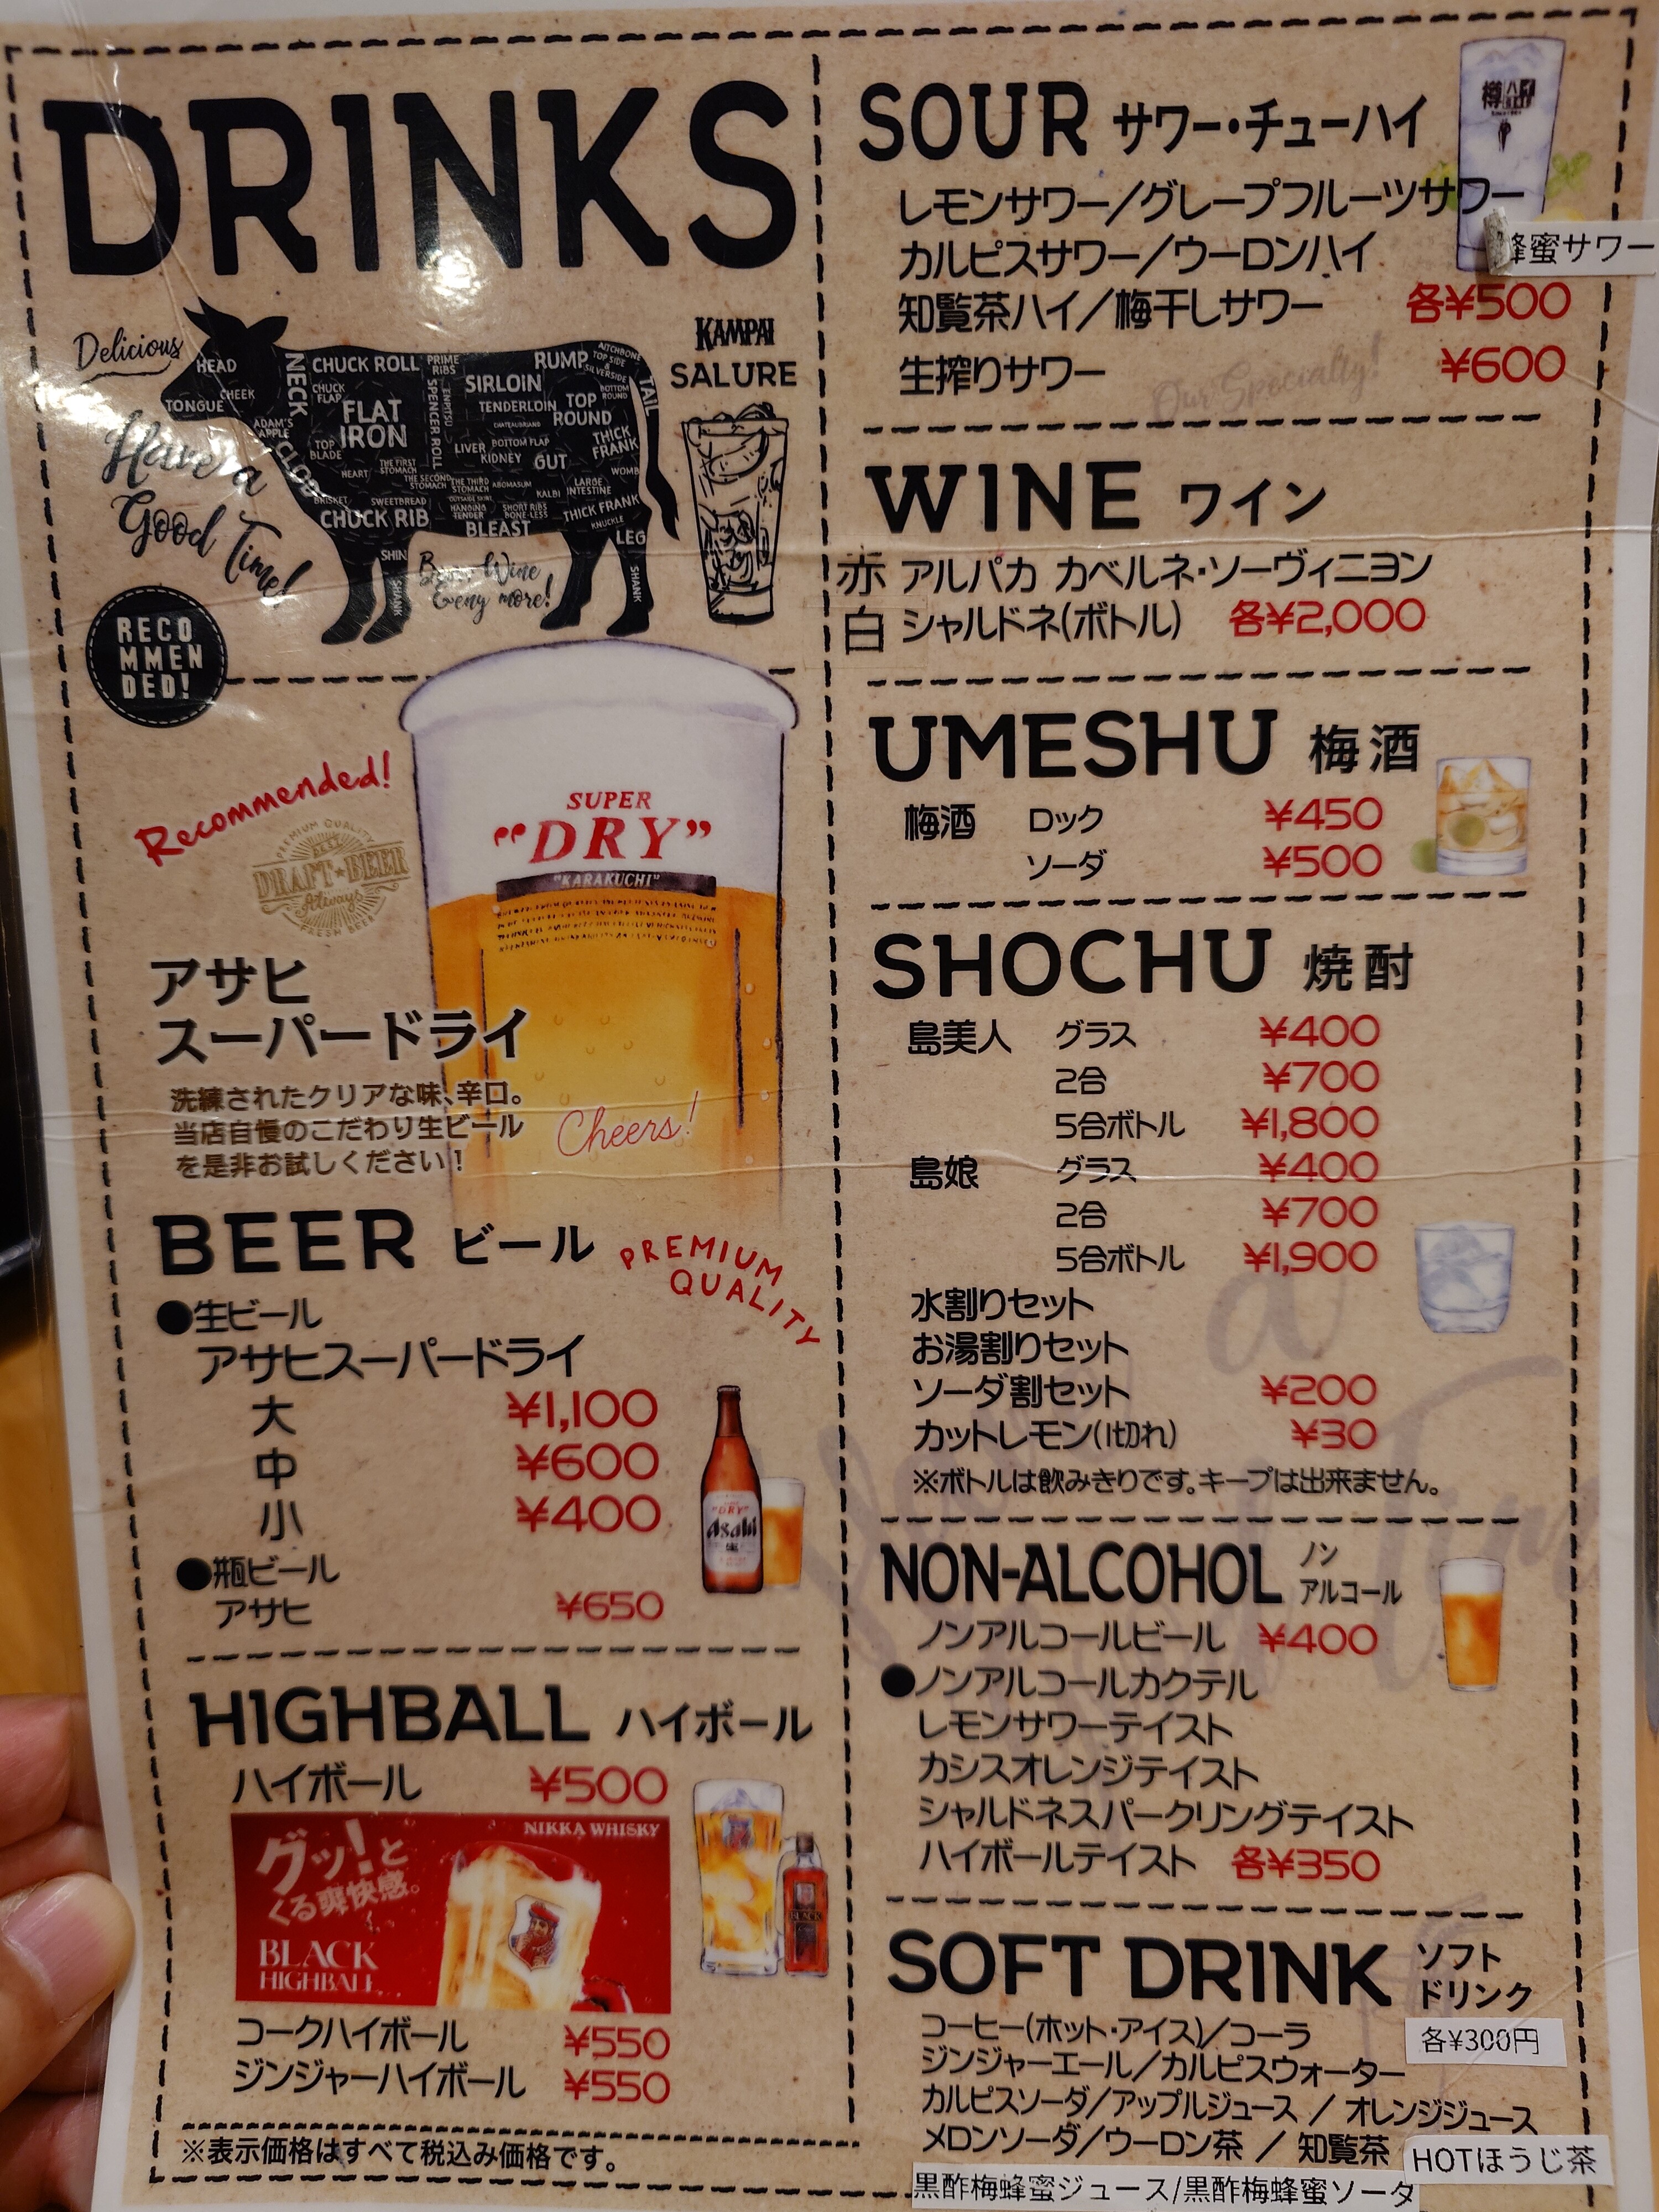 DRINKS
Delicious
Have a
Good
Time!
HEAD
CHEEK
TONGUE
NECK
ADAM'S
APPLE
CLOD
CHUCK ROLL
CHUCK
FLAP
FLAT
IRON
TOP
BLADE
PRIME
RIBS
SPENCER ROLL
SIRLOIN
TENDERLOIN
CHATEAUBRIAND
RUMP
AITCHBONE
TOP SIDE
&
SILVERSIDE
BOTTOM
ROUND
TOP
ROUND
TAIL
THICK
FRANK
LIVER
BOTTOM FLAP
KIDNEY
GUT
WOMB
HEART
THE FIRST
STOMACH
THE SECOND
STOMACH
THE THIRD
STOMACH
ABOMASUM
KALBI
LARGE
INTESTINE
BRISKET
SWEETBREAD
CHUCK RIB
HANGING
TENDER
SHORT RIBS
BONE-LESS
BLEAST
THICK FRANK
KNUCKLE
LEG
SHIN
SHANK
SHANK
KAMPAI
SALURE
RECO
MMEN
DED!
Recommended!
PREMIUM QUALITY
DRAFT★BEER
Always
FRESH BEER
SUPER
"DRY"
"KARAKUCHI"
アサヒ
スーパードライ
洗練されたクリアな味、辛口。
当店自慢のこだわり生ビール
を是非お試しください!
Cheers!
BEER ビール
PREMIUM
QUALITY
●生ビール
アサヒスーパードライ
大 ¥1,100
中 ¥600
小 ¥400
●瓶ビール
アサヒ ¥650
"DRY"
Asahi
HIGHBALL ハイボール
ハイボール ¥500
NIKKA WHISKY
グッ!と
くる爽快感。
BLACK
HIGHBALL
BLACK
コークハイボール ¥550
ジンジャーハイボール ¥550
※表示価格はすべて税込み価格です。
SOUR サワー・チューハイ
レモンサワー/グレープフルーツサワー
蜂蜜サワー
カルピスサワー/ウーロンハイ
知覧茶ハイ/梅干しサワー 各¥500
生搾りサワー ¥600
Our Specialty!
WINE ワイン
赤 アルパカ カベルネ・ソーヴィニヨン
白 シャルドネ(ボトル) 各¥2,000
UMESHU 梅酒
梅酒 ロック ¥450
ソーダ ¥500
SHOCHU 焼酎
島美人 グラス ¥400
2合 ¥700
5合ボトル ¥1,800
島娘 グラス ¥400
2合 ¥700
5合ボトル ¥1,900
水割りセット
お湯割りセット
ソーダ割セット ¥200
カットレモン(1切れ) ¥30
※ボトルは飲みきりです。キープは出来ません。
NON-ALCOHOL ノン
アルコール
ノンアルコールビール ¥400
●ノンアルコールカクテル
レモンサワーテイスト
カシスオレンジテイスト
シャルドネスパークリングテイスト
ハイボールテイスト 各¥350
SOFT DRINK ソフト
ドリンク
各¥300円
コーヒー(ホット・アイス)/コーラ
ジンジャーエール/カルピスウォーター
カルピスソーダ/アップルジュース / オレンジジュース
メロンソーダ/ウーロン茶 / 知覧茶
HOTほうじ茶
黒酢梅蜂蜜ジュース/黒酢梅蜂蜜ソーダ